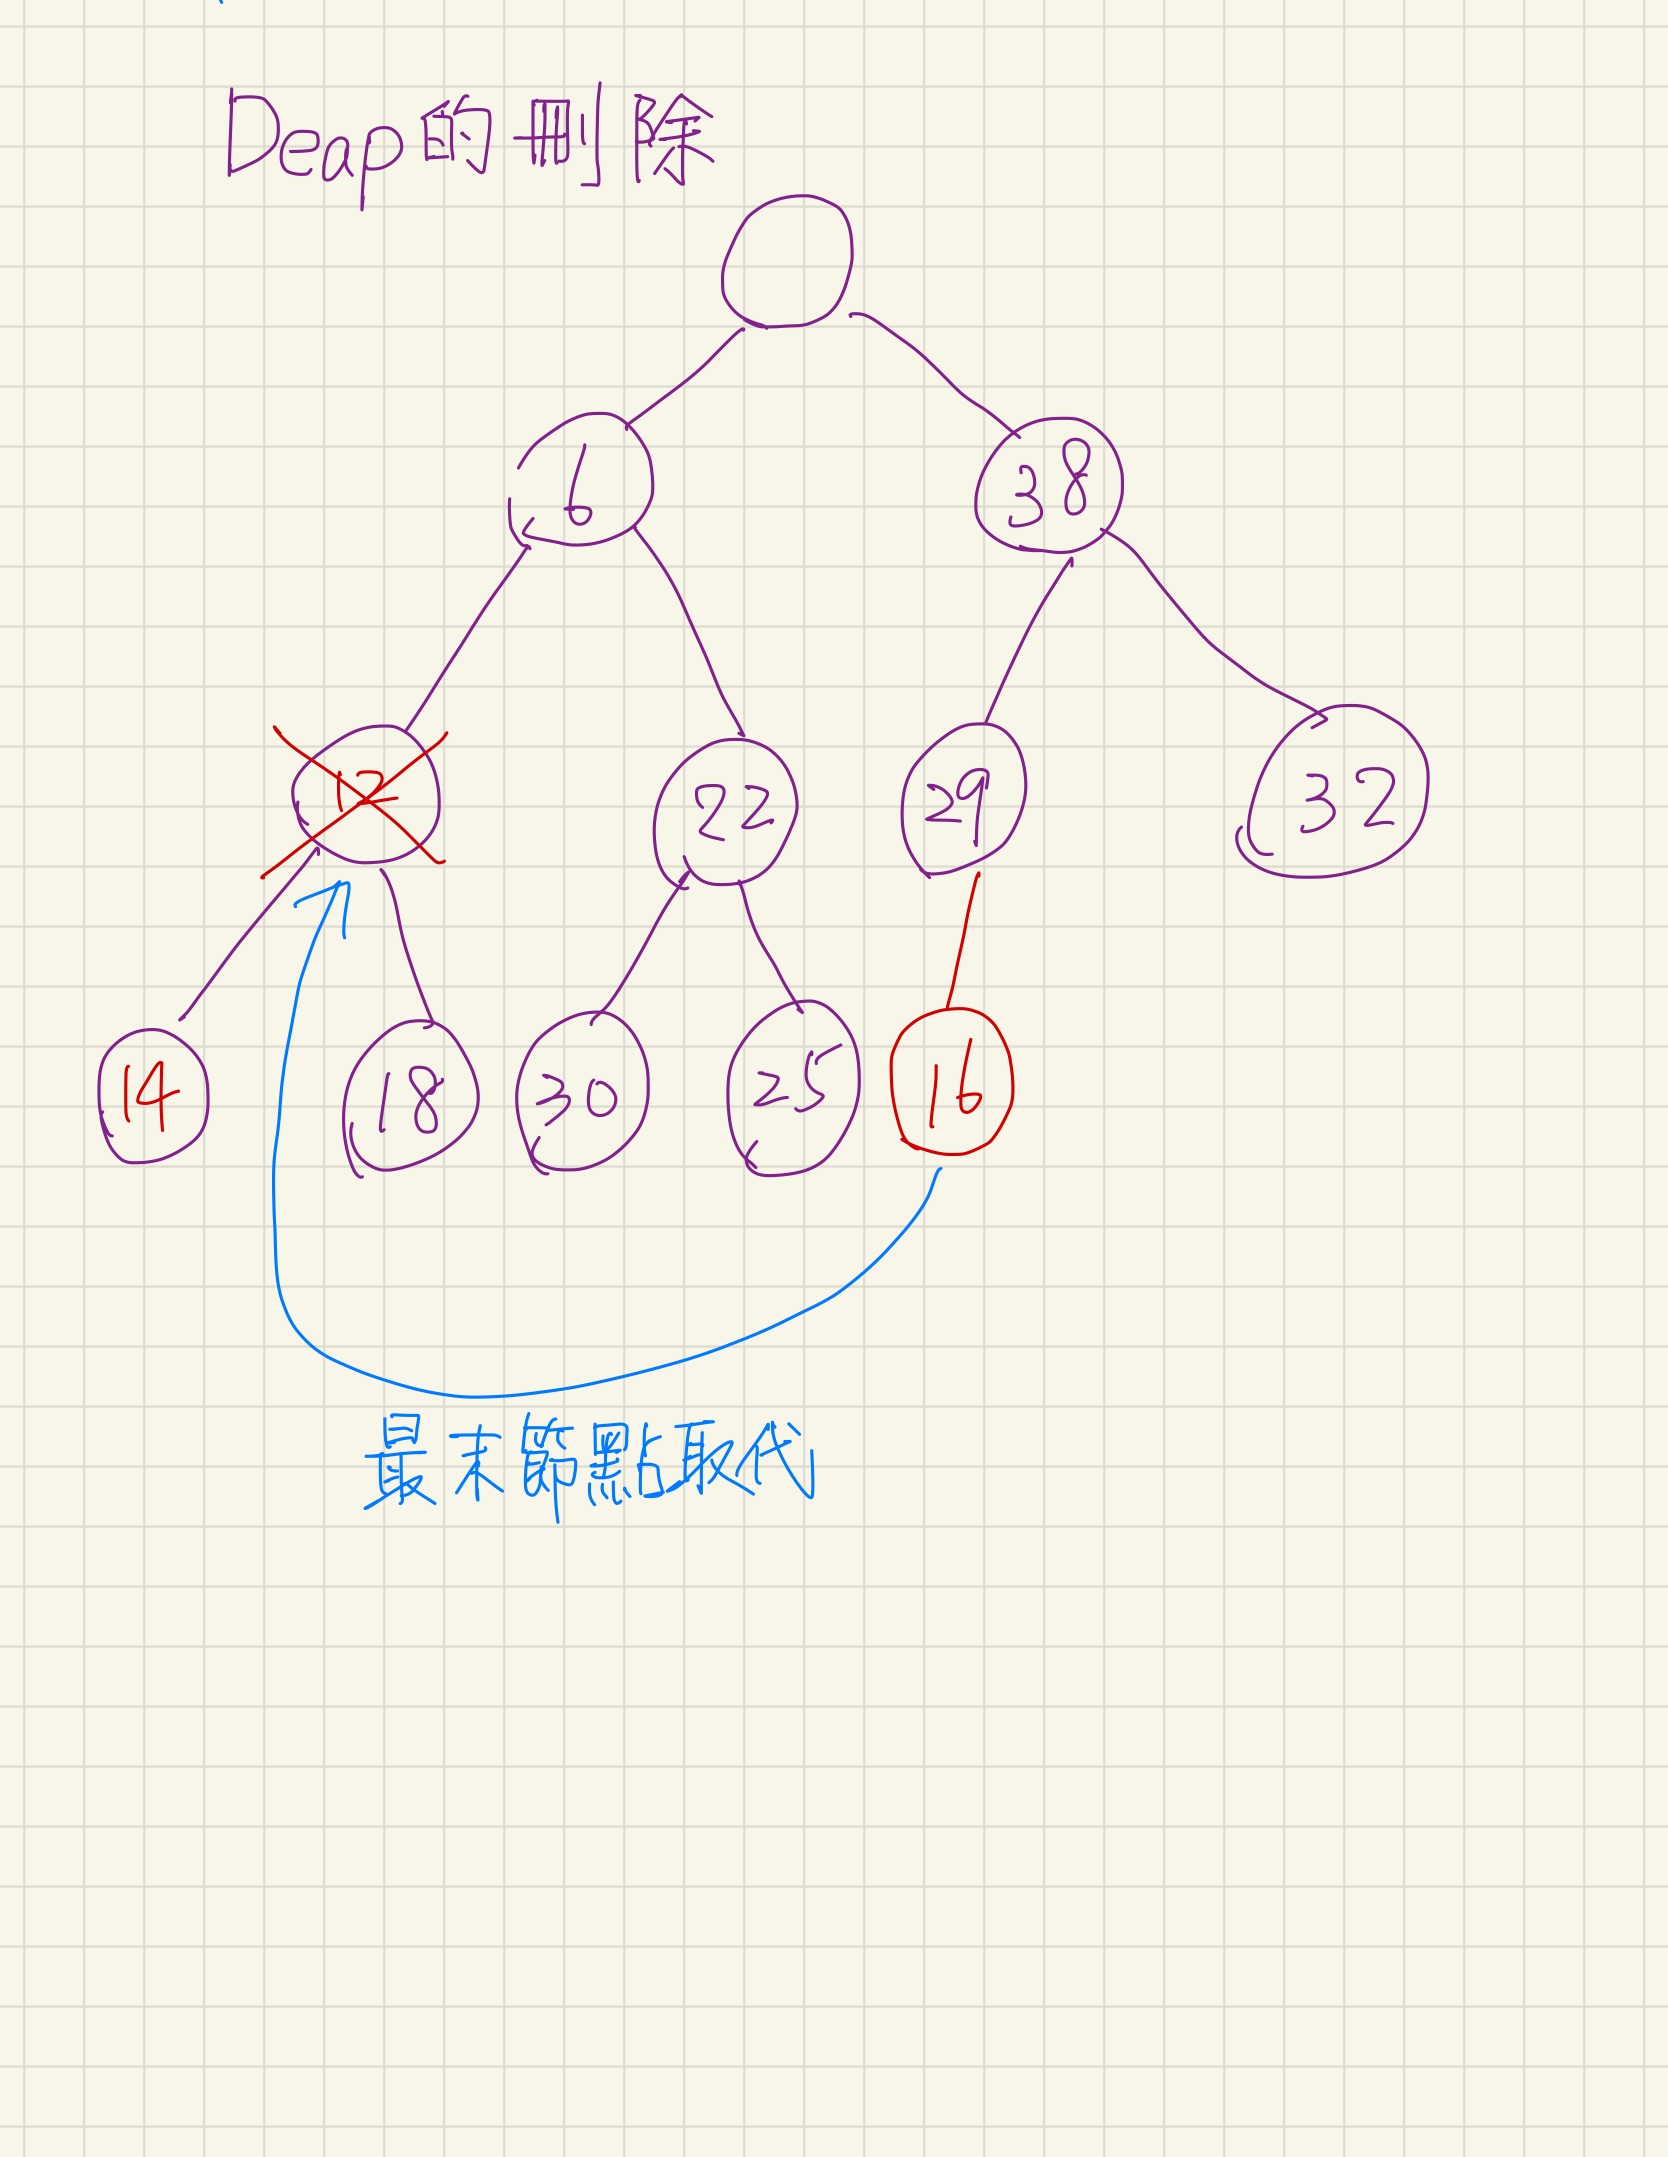 Deap的刪除
6 38
12 22 29 32
14 18 30 25 16
最末節點取代